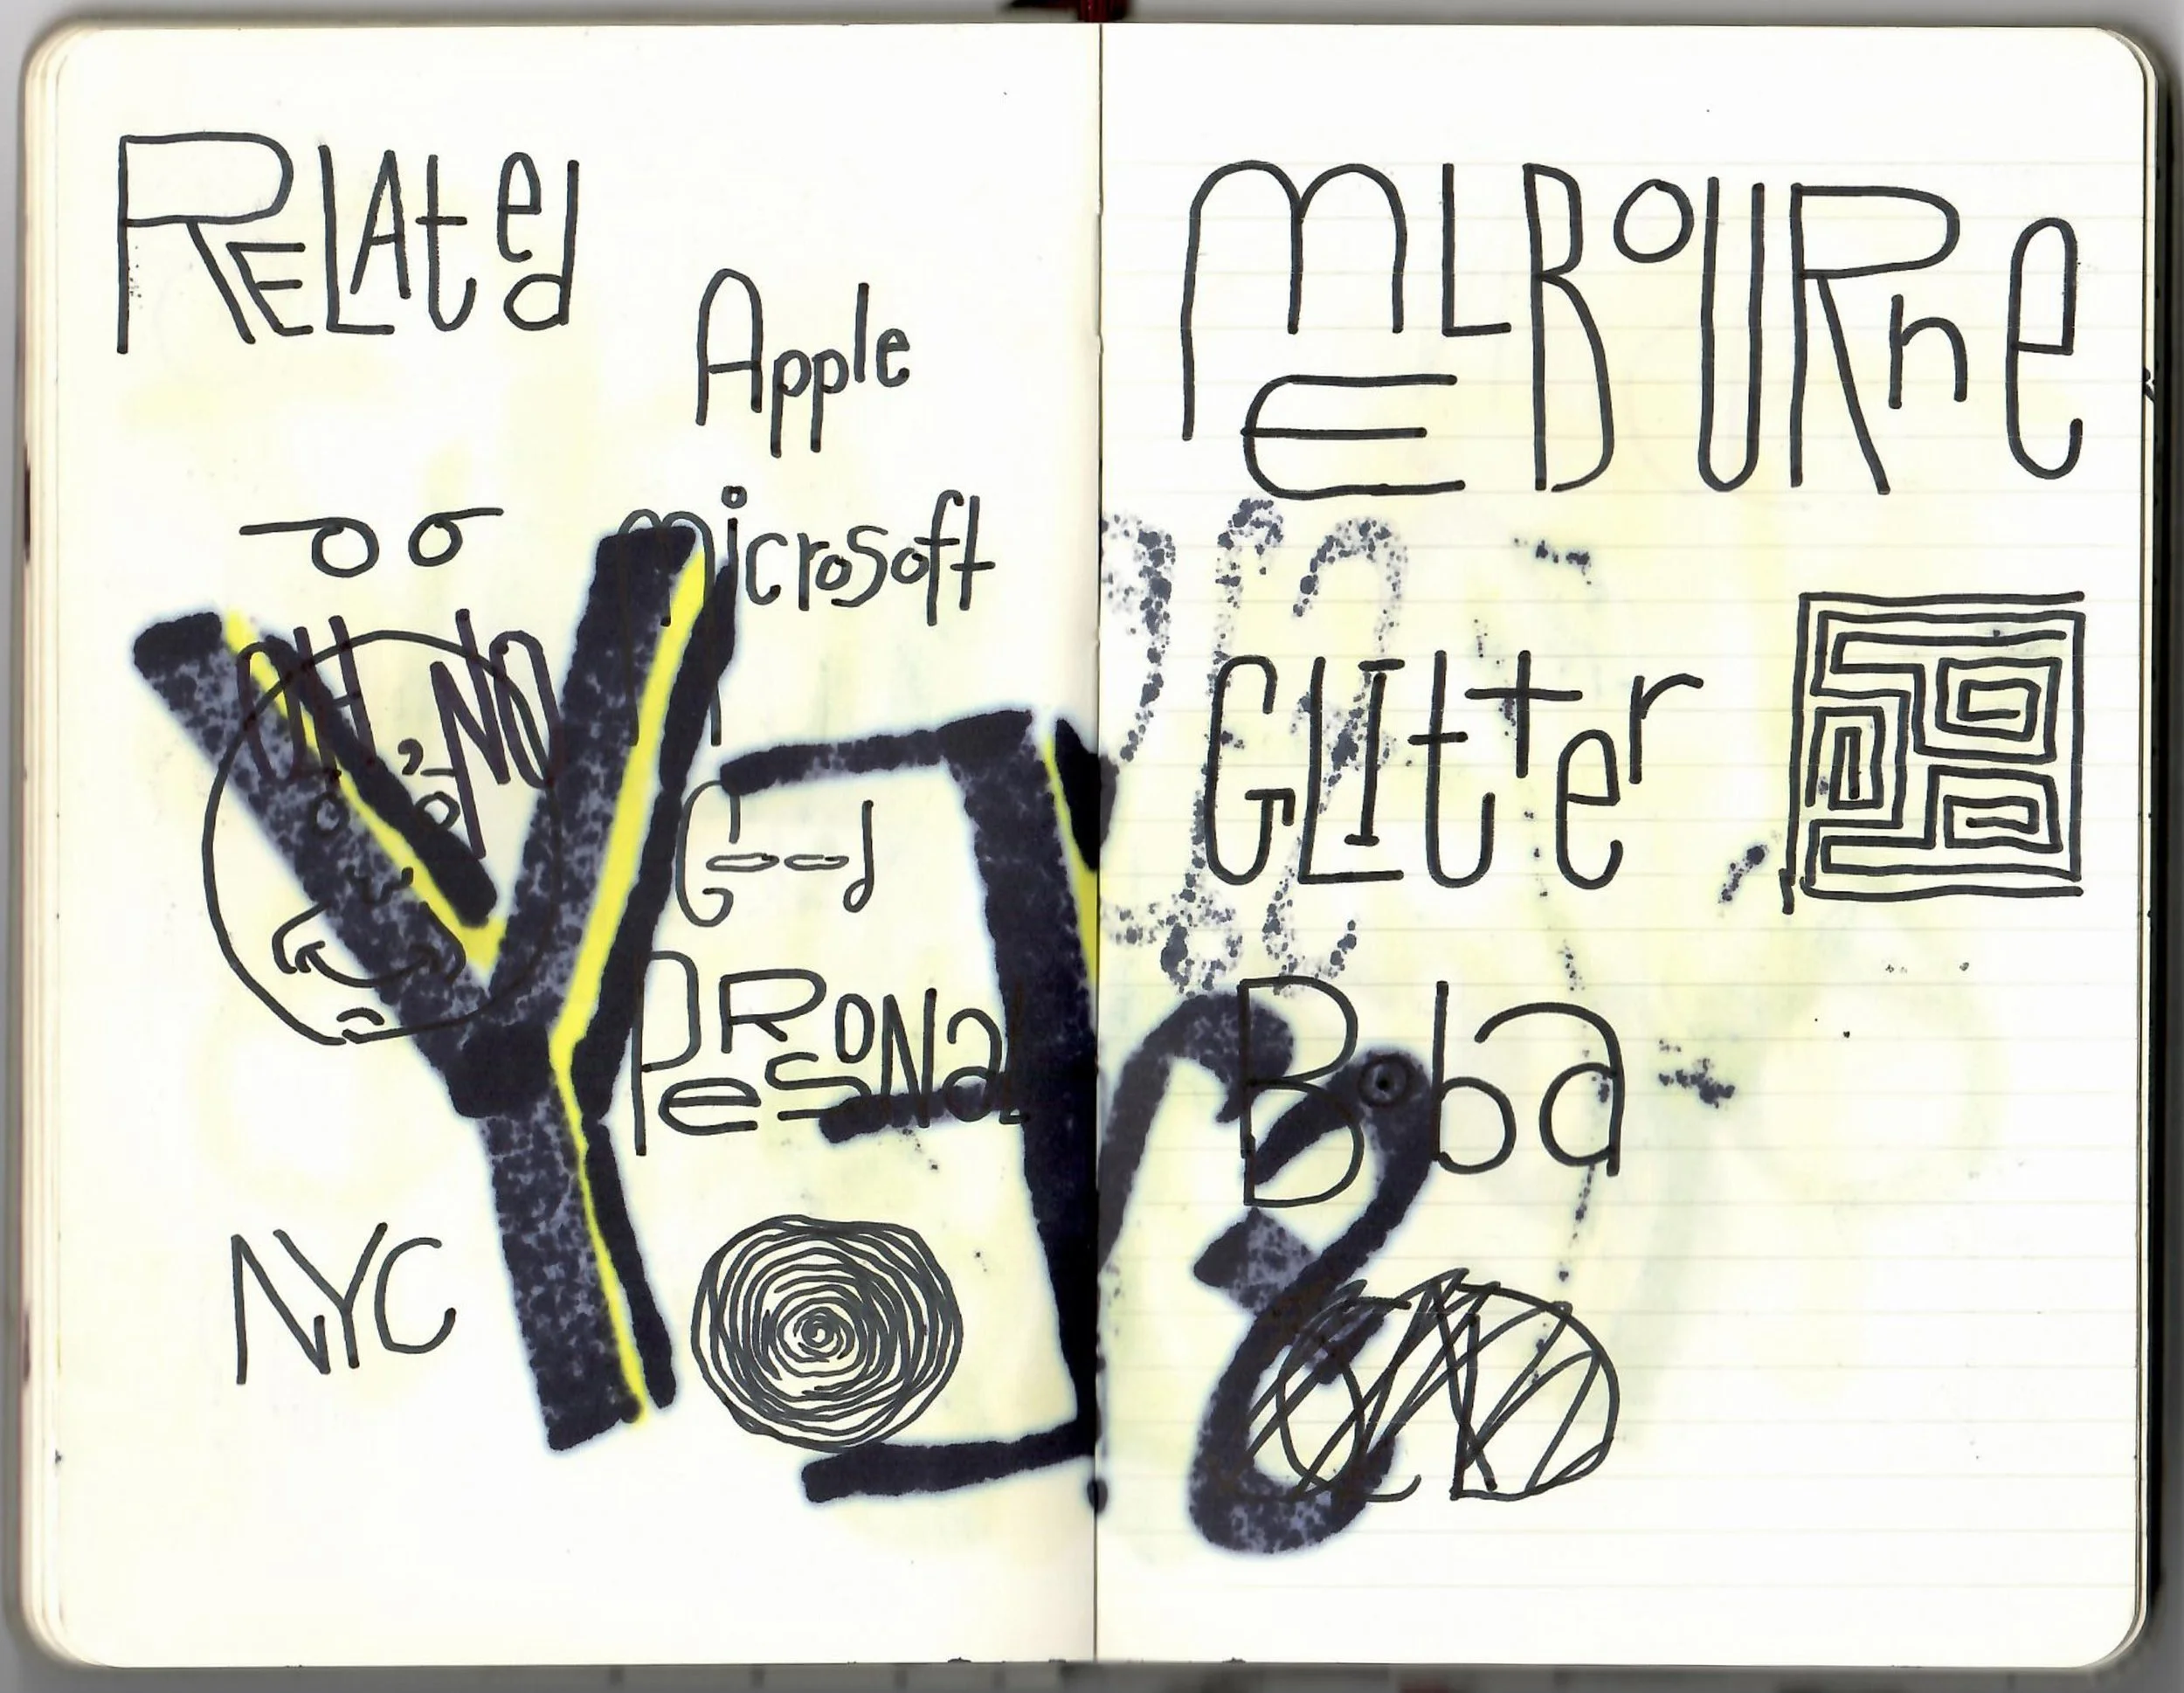 RELAted
Apple
microsoft
OH, NO
PeRsoNaL
NYC
MELBOURne
GLItter
Boba